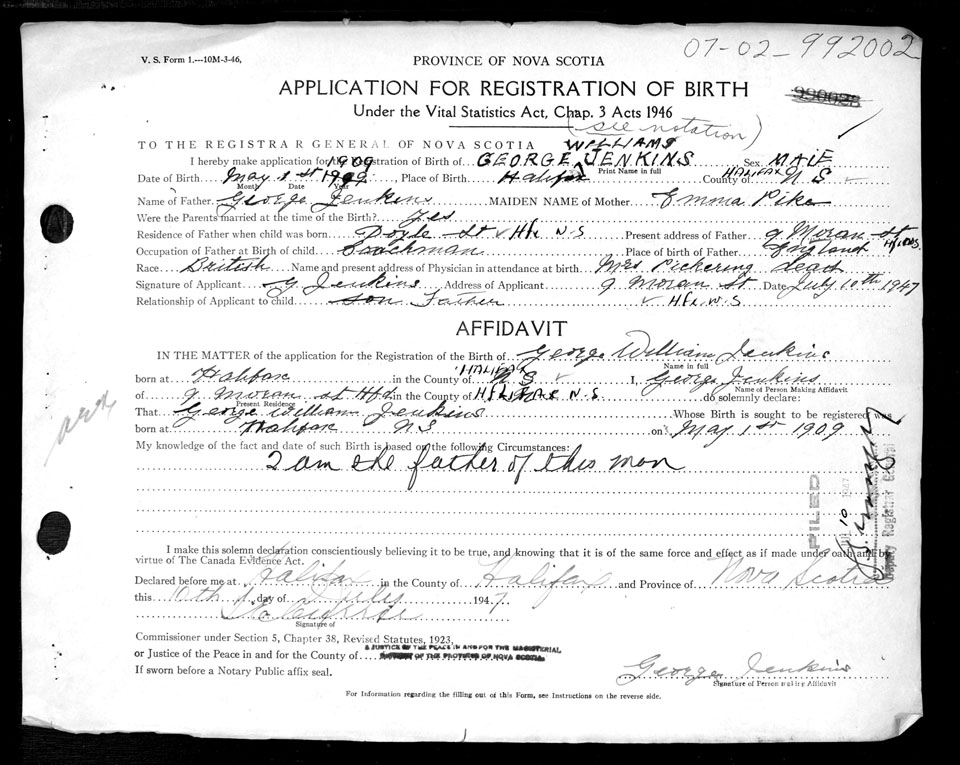 07-02-992002
V. S. Form 1.---10M-3-46.
PROVINCE OF NOVA SCOTIA
APPLICATION FOR REGISTRATION OF BIRTH
990028
Under the Vital Statistics Act, Chap. 3 Acts 1946
(see notation)
TO THE REGISTRAR GENERAL OF NOVA SCOTIA
WILLIAMS
I hereby make application for the Registration of Birth of GEORGE JENKINS Sex MALE
Print Name in full
1909
Date of Birth May 1st 1909 Place of Birth Halifax County of HALIFAX N S
Month Date Year
Name of Father George Jenkins MAIDEN NAME of Mother Emma Pike
Were the Parents married at the time of the Birth? Yes
Residence of Father when child was born Doyle St Hfx N.S Present address of Father 9 Moran St Hfx N.S
Occupation of Father at Birth of child Place of birth of Father England
Race British Name and present address of Physician in attendance at birth Mrs Pickering dead
Signature of Applicant G Jenkins Address of Applicant 9 Moran St. Date July 10th 1947
Relationship of Applicant to child son Father Hfx. N.S
AFFIDAVIT
IN THE MATTER of the application for the Registration of the Birth of George William Jenkins
Name in full
born at Halifax in the County of HALIFAX N S I, George Jenkins
Name of Person Making Affidavit
of 9 Moran st Hfx in the County of HALIFAX N.S. do solemnly declare:
Present Residence
That George William Jenkins Whose Birth is sought to be registered was
born at Halifax N S on May 1st 1909
My knowledge of the fact and date of such Birth is based on the following Circumstances:
I am the father of this man
FILED
10 1947
Deputy Registrar General
I make this solemn declaration conscientiously believing it to be true, and knowing that it is of the same force and effect as if made under oath and by
virtue of The Canada Evidence Act.
Declared before me at Halifax in the County of Halifax and Province of Nova Scotia
this 10th day of July 1947
Signature of
Commissioner under Section 5, Chapter 38, Revised Statutes, 1923,
or Justice of the Peace in and for the County of A JUSTICE OF THE PEACE IN AND FOR THE MAGISTERIAL
OF THE PROVINCE OF NOVA SCOTIA
If sworn before a Notary Public affix seal.
George Jenkins
Signature of Person making Affidavit
For Information regarding the filling out of this Form, see Instructions on the reverse side.